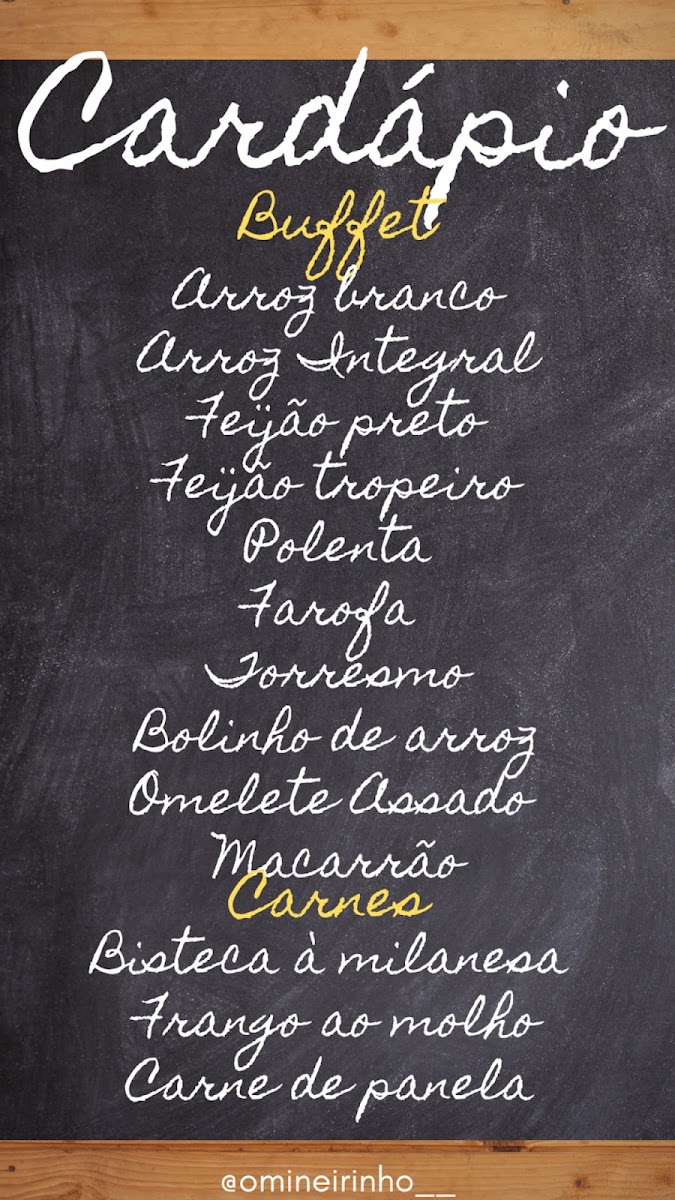 Cardápio
Buffet
Arroz branco
Arroz Integral
Feijão preto
Feijão tropeiro
Polenta
Farofa
Torresmo
Bolinho de arroz
Omelete Assado
Macarrão
Carnes
Bisteca à milanesa
Frango ao molho
Carne de panela
@omineirinho__